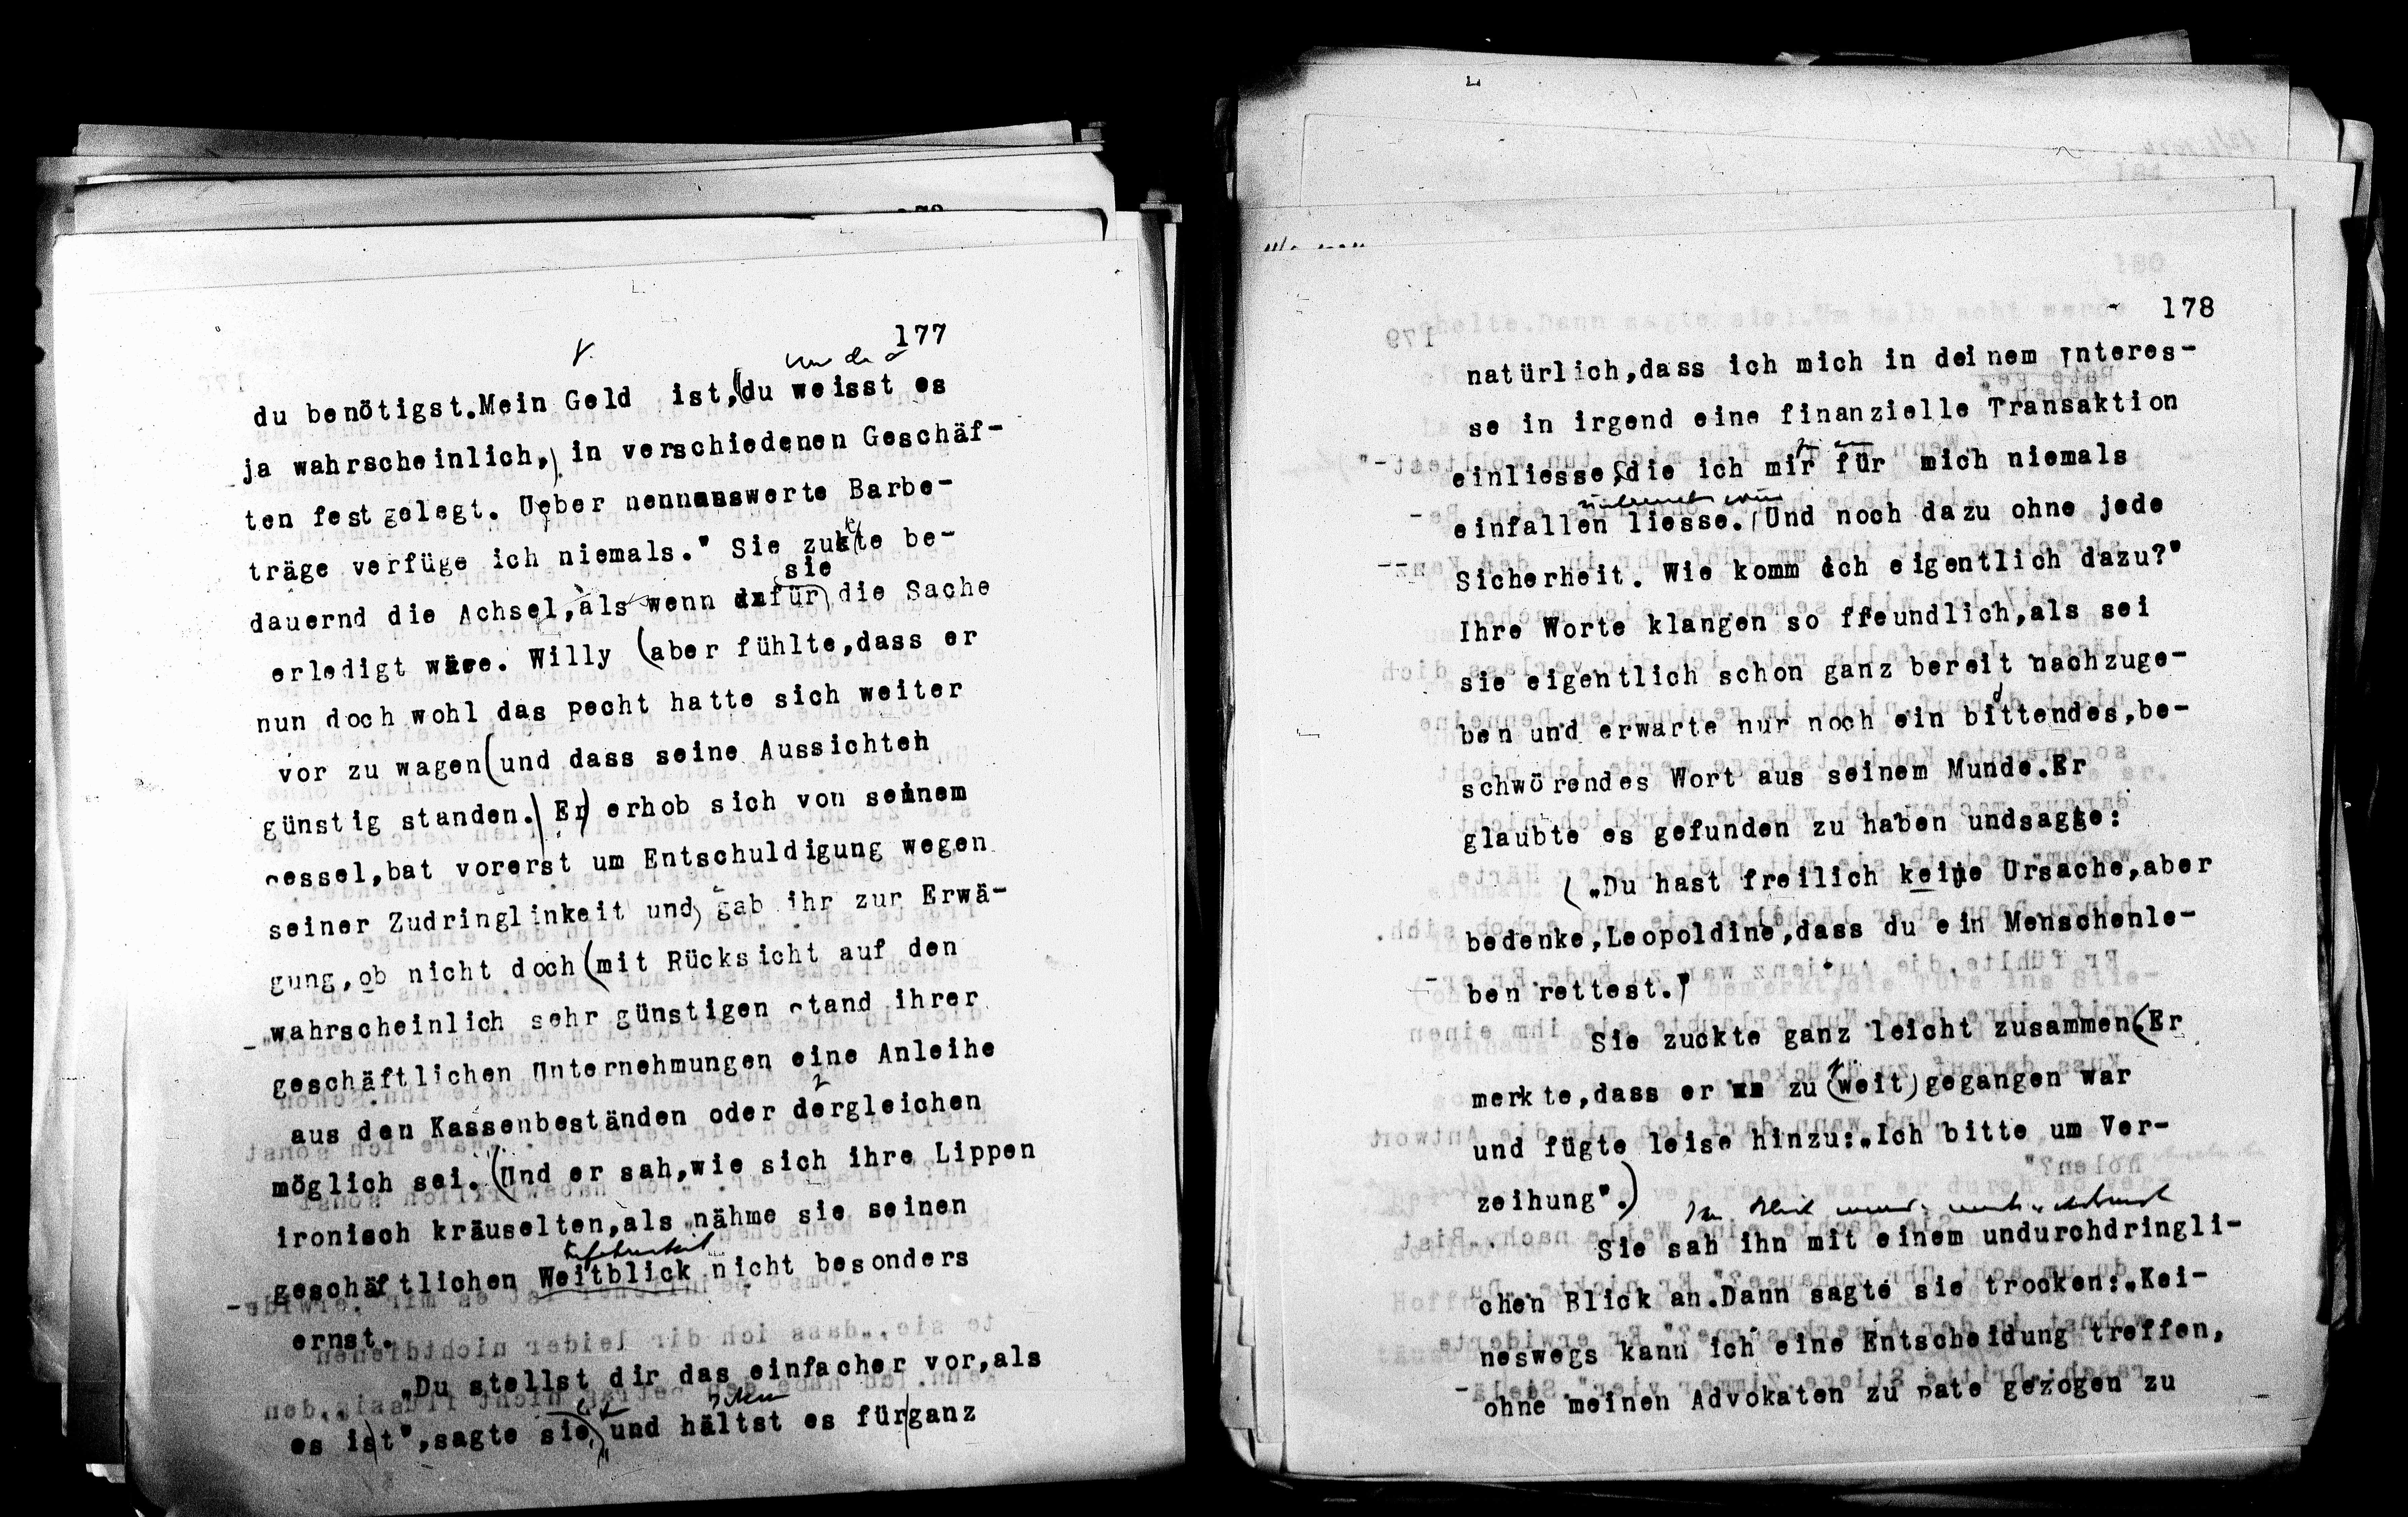 177
du benötigst.Mein Geld ist,(du weisst es
ja wahrscheinlich,) in verschiedenen Geschäf-
ten festgelegt. Ueber nennenswerte Barbe-
träge verfüge ich niemals." Sie zukte be-
sie
dauernd die Achsel,als wenn dafür) die Sache
erledigt wäre. Willy (aber fühlte,dass er
nun doch wohl das Recht hatte sich weiter
vor zu wagen(und dass seine Aussichten
günstig standen.) Er) erhob sich von seinem
Sessel,bat vorerst um Entschuldigung wegen
seiner Zudringlinkeit und) gab ihr zur Erwä-
gung,ob nicht doch(mit Rücksicht auf den
wahrscheinlich sehr günstigen Stand ihrer
geschäftlichen Unternehmungen eine Anleihe
aus den Kassenbeständen oder dergleichen
möglich sei.(Und er sah,wie sich ihre Lippen
ironisch kräuselten,als nähme sie seinen
geschäftlichen Weitblick nicht besonders
ernst.
„Du stellst dir das einfacher vor,als
es ist",sagte sie) und hältst es für ganz
178
natürlich,dass ich mich in deinem Interes-
se in irgend eine finanzielle Transaktion
einliesse,die ich mir für mich niemals
einfallen liesse. Und noch dazu ohne jede
Sicherheit. Wie komm ich eigentlich dazu?"
Ihre Worte klangen so freundlich,als sei
sie eigentlich schon ganz bereit nachzuge-
ben und erwarte nur noch ein bittendes,be-
schwörendes Wort aus seinem Munde.Er
glaubte es gefunden zu haben undsagte:
(„Du hast freilich keine Ursache,aber
bedenke,Leopoldine,dass du ein Menschenle-
ben rettest."
Sie zuckte ganz leicht zusammen.(Er
merkte,dass er zu (weit) gegangen war
und fügte leise hinzu:„Ich bitte um Ver-
zeihung".)
Sie sah ihn mit einem undurchdringli-
chen Blick an.Dann sagte sie trocken:„Kei-
neswegs kann ich eine Entscheidung treffen,
ohne meinen Advokaten zu Rate gezogen zu